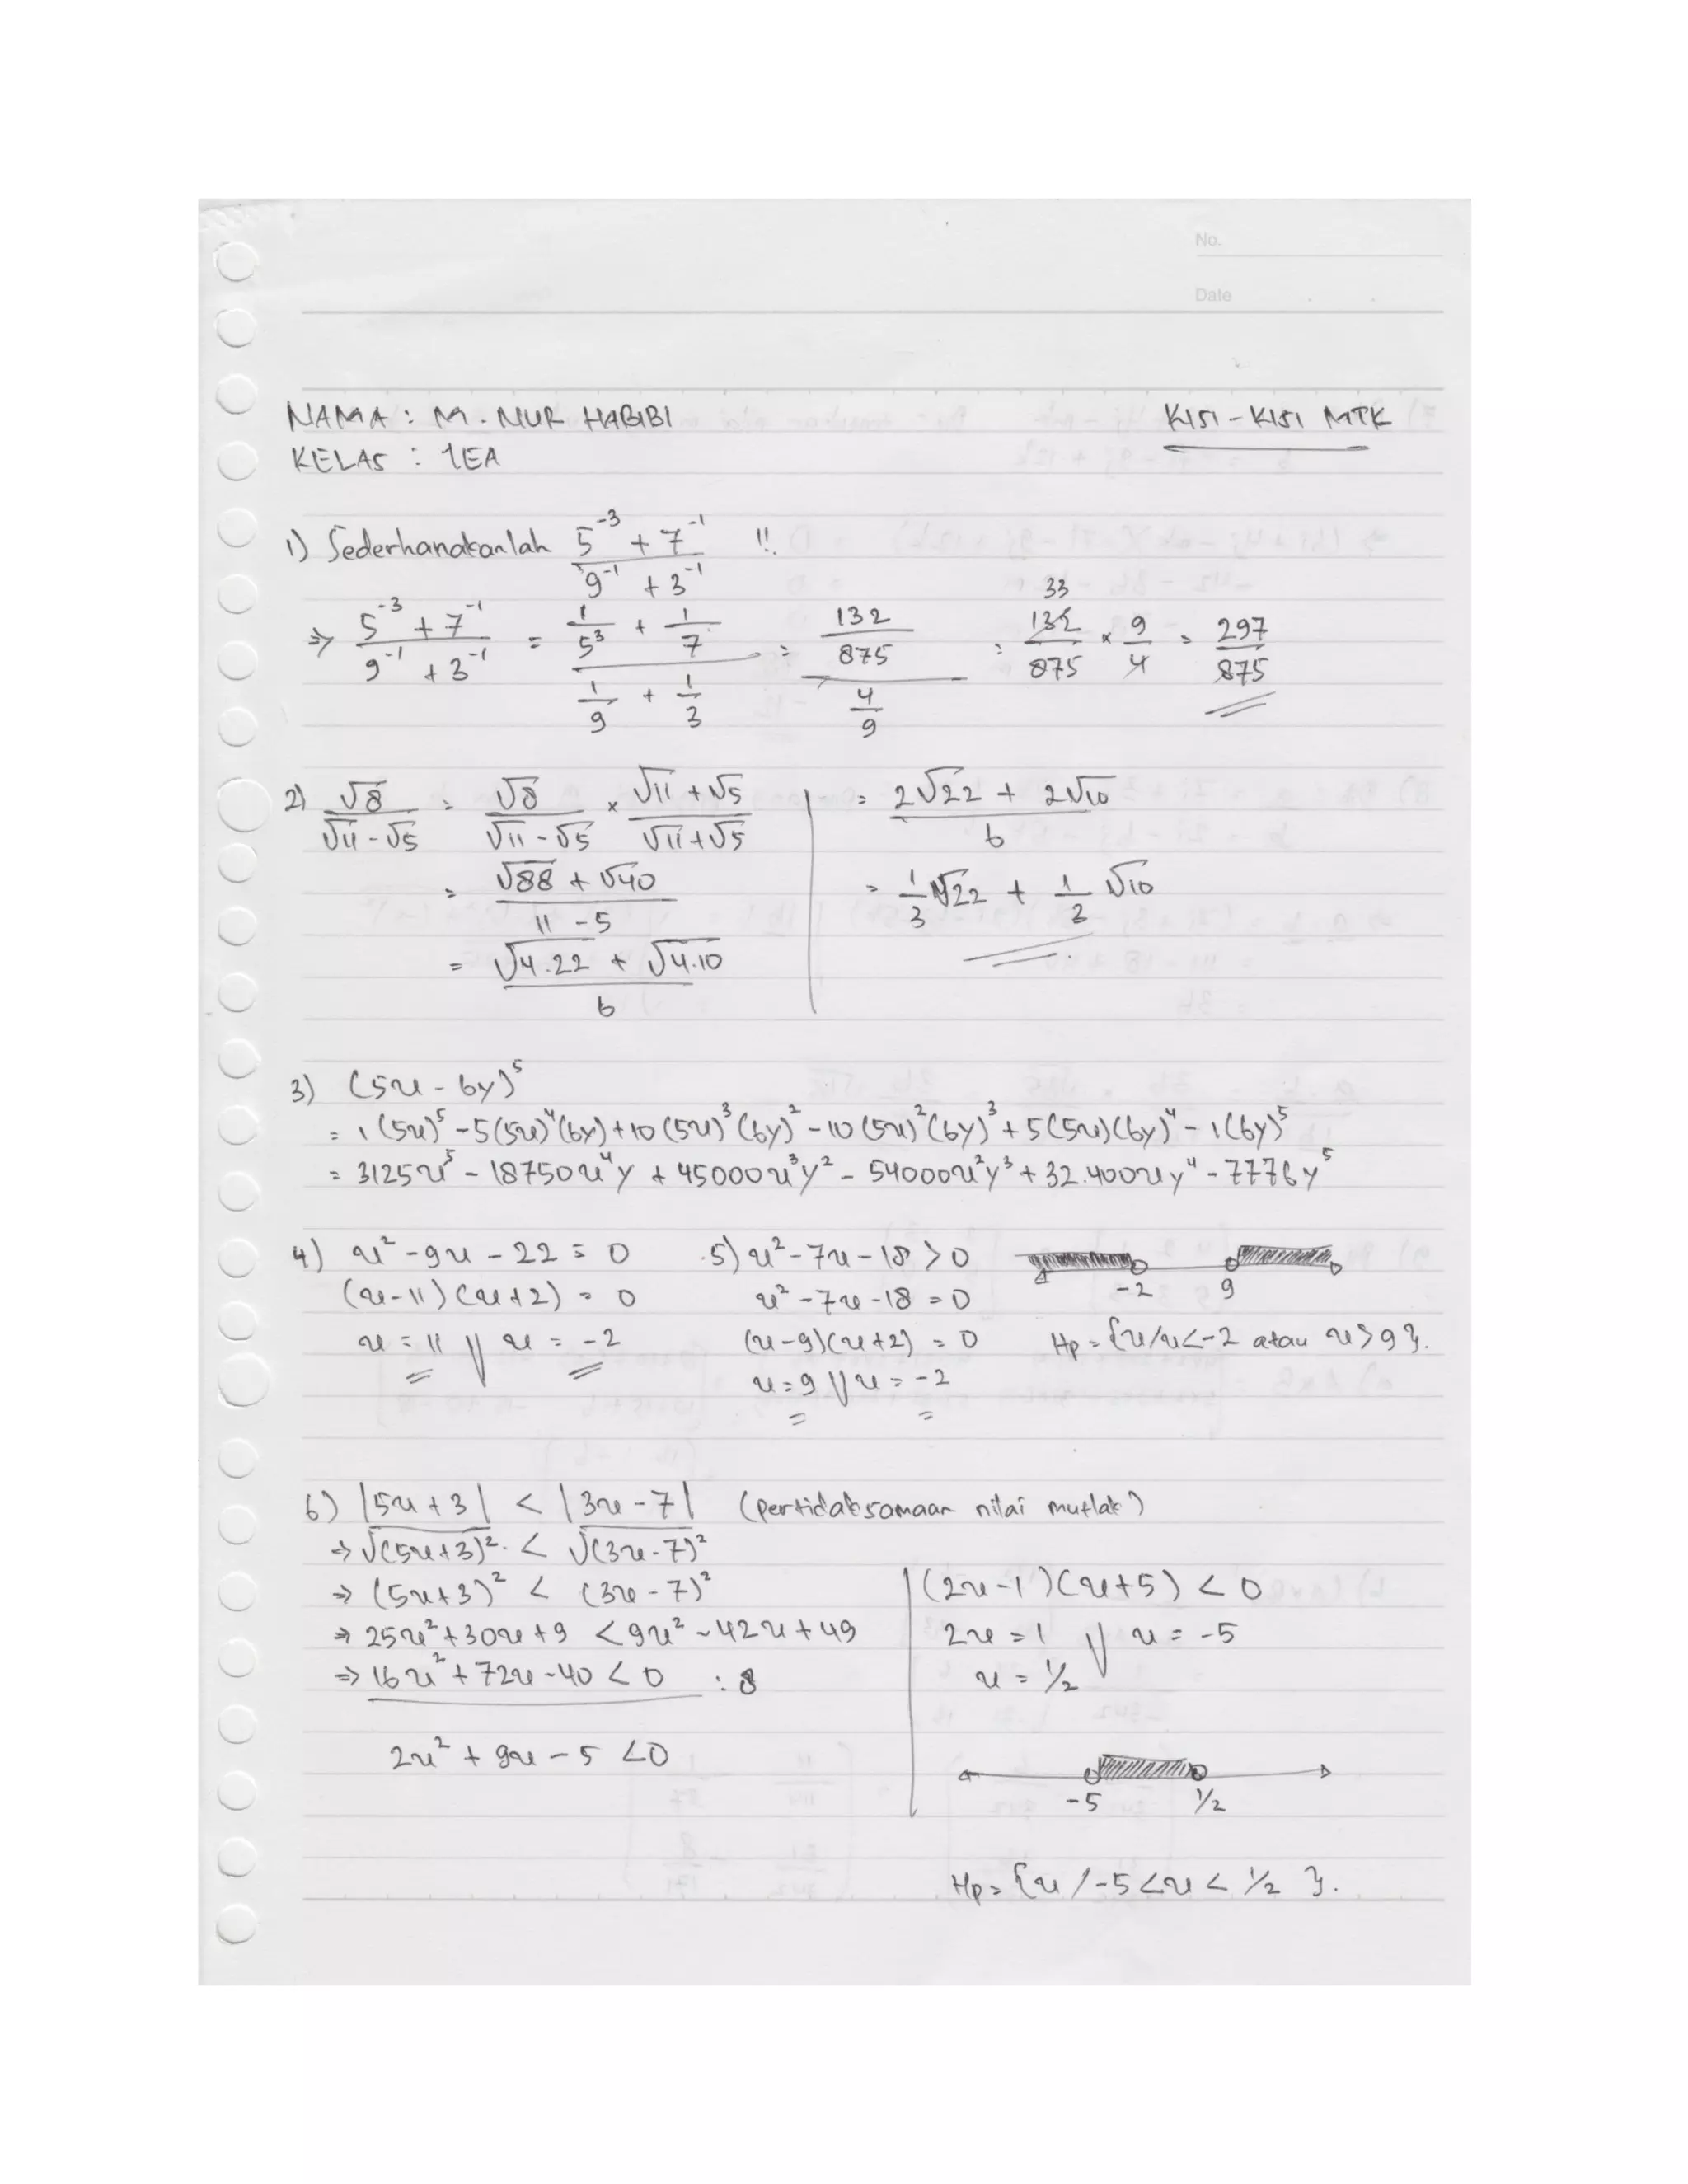 No.
Date
NAMA : M. NUR HABIBI
KISI-KISI MTK
KELAS : 1EA
1) Sederhanakanlah (5^-3 + 7^-1)/(9^-1 + 3^-1) !!
⇒ (5^-3 + 7^-1)/(9^-1 + 3^-1) = (1/5^3 + 1/7)/(1/9 + 1/3) = (132/875)/(4/9) = 33 132/875 × 9/4 = 297/875
2) √8/(√11-√5) = √8/(√11-√5) × (√11+√5)/(√11+√5)
= (√88 + √40)/(11-5)
= (√4.22 + √4.10)/6
= (2√22 + 2√10)/6
= 1/3 √22 + 1/3 √10
3) (5x - 6y)^5
= 1(5x)^5 - 5(5x)^4(6y) + 10(5x)^3(6y)^2 - 10(5x)^2(6y)^3 + 5(5x)(6y)^4 - 1(6y)^5
= 3125x^5 - 18750x^4y + 45000x^3y^2 - 54000x^2y^3 + 32.400xy^4 - 7776y^5
4) x^2 - 9x - 22 = 0
(x-11)(x+2) = 0
x = 11 V x = -2
5) x^2 - 7x - 18 > 0
x^2 - 7x - 18 = 0
(x-9)(x+2) = 0
x = 9 V x = -2
-2 9
Hp = {x/x<-2 atau x>9}.
6) |5x + 3| < |3x - 7| (pertidaksamaan nilai mutlak)
⇒ √(5x+3)^2 < √(3x-7)^2
⇒ (5x+3)^2 < (3x-7)^2
⇒ 25x^2 + 30x + 9 < 9x^2 - 42x + 49
⇒ 16x^2 + 72x - 40 < 0 : 8
2x^2 + 9x - 5 < 0
(2x-1)(x+5) < 0
2x = 1 V x = -5
x = 1/2
-5 1/2
Hp = {x / -5 < x < 1/2 }.